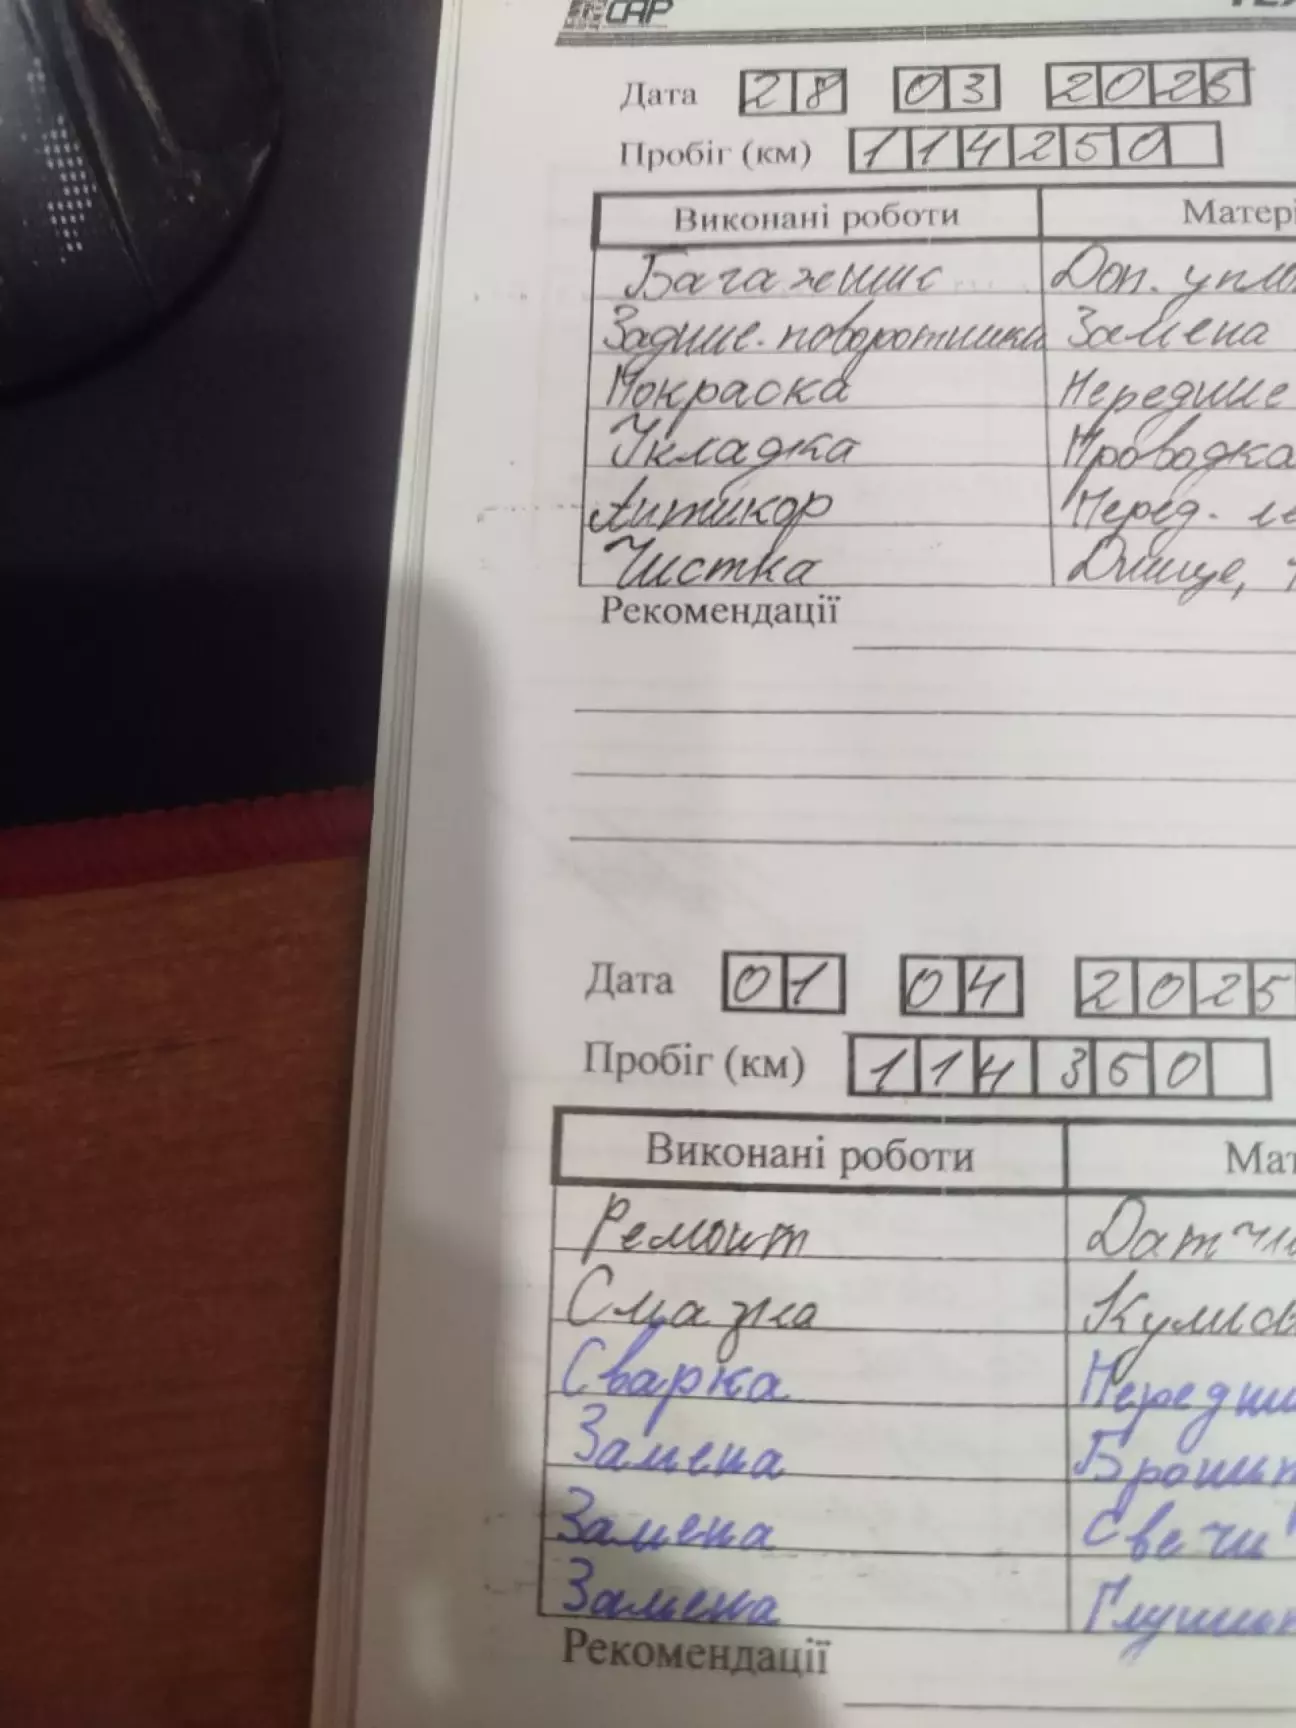 CAP
Дата 28 03 2025
Пробіг (км) 114250
Виконані роботи Матері
Багажник Доп. упло
Задние. поворотники Замена
Покраска Передние
Укладка Проводка
Антикор Перед. ле
Чистка Днище,
Рекомендації
Дата 01 04 2025
Пробіг (км) 114350
Виконані роботи Мат
Ремонт Датчи
Смазка Кулис
Сварка Передни
Замена
Замена Свечи
Замена Глушит
Рекомендації